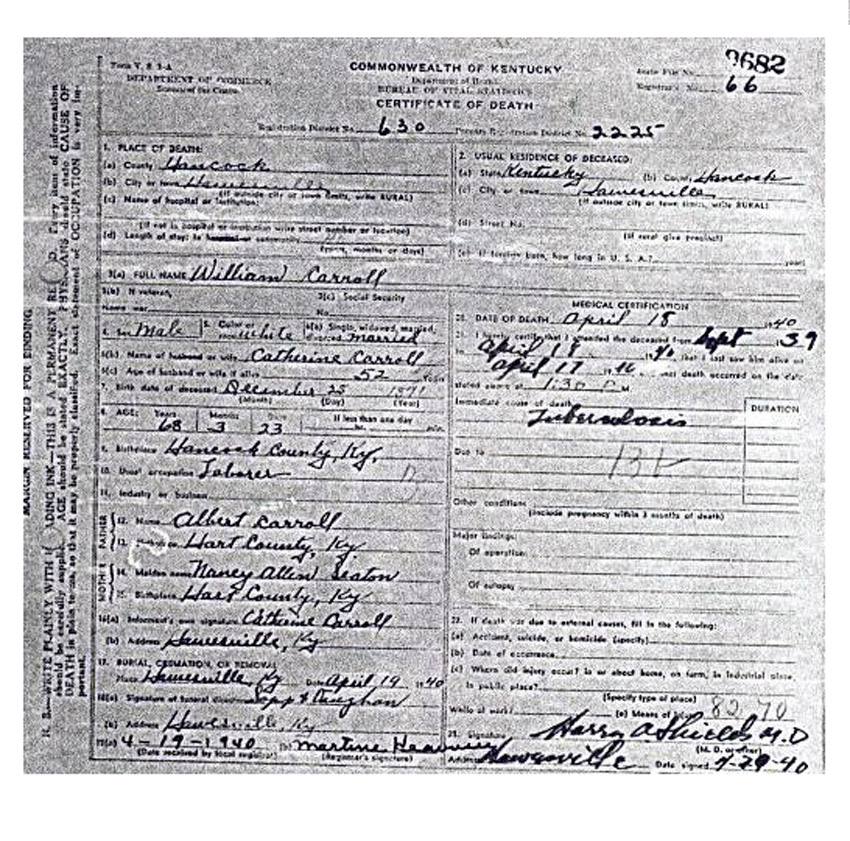 Form V. S. 1-A
DEPARTMENT OF COMMERCE
COMMONWEALTH OF KENTUCKY
Department of Health
BUREAU OF VITAL STATISTICS
CERTIFICATE OF DEATH
State File No. 9682
Registrar's No. 66
Registration District No. 630 Primary Registration District No. 2225
1. PLACE OF DEATH:
(a) County Hancock
(b) City or town Hawesville
(If outside city or town limits, write RURAL)
(c) Name of hospital or institution:
(If not in hospital or institution write street number or location)
(d) Length of stay: In hospital or community
(years, months or days)
2. USUAL RESIDENCE OF DECEASED:
(a) State Kentucky (b) County Hancock
(c) City or town Hawesville
(If outside city or town limits, write RURAL)
(d) Street No.
(If rural give precinct)
(e) If foreign born, how long in U. S. A.? years
3(a) FULL NAME William Carroll
3(b) If veteran, 3(c) Social Security
Name war No.
4. Sex Male 5. Color or race white 6(a) Single, widowed, married, divorced married
6(b) Name of husband or wife Catherine Carroll
6(c) Age of husband or wife if alive 52 Years
7. Birth date of deceased December 25 1871
(Month) (Day) (Year)
8. AGE: Years Months Days If less than one day
68 3 23 hr. min.
9. Birthplace Hancock County, Ky.
10. Usual occupation Laborer
11. Industry or business
FATHER
12. Name Albert Carroll
13. Birthplace Hart County, Ky
MOTHER
14. Maiden name Nancy Allen Seaton
15. Birthplace Hart County, Ky
16(a) Informant's own signature Catherine Carroll
(b) Address Hawesville, Ky
17. BURIAL, CREMATION, OR REMOVAL
Place Hawesville, Ky Date April 19 1940
18(a) Signature of funeral director & Vaughan
(b) Address Hawesville, Ky
19(a) 4-19-1940 (b) Martine
(Date received by local registrar) (Registrar's signature)
MEDICAL CERTIFICATION
20. DATE OF DEATH April 18 1940
21. I hereby certify that I attended the deceased from Sept 39
to April 18 1940 that I last saw him alive on
April 17 1940 and death occurred on the date
stated above at 1:30 P M.
Immediate cause of death
DURATION
Tuberculosis
Due to
13b
Other conditions
(Include pregnancy within 3 months of death)
Major findings:
Of operation
Of autopsy
22. If death was due to external causes, fill in the following:
(a) Accident, suicide, or homicide (specify)
(b) Date of occurrence
(c) Where did injury occur? In or about home, on farm, in industrial place,
in public place?
(Specify type of place)
While at work? (e) Means of injury
23. Signature Harry A Shields M.D
(M. D. or other)
Address Hawesville Date signed 4-29-40
MARGIN RESERVED FOR BINDING
N. B.—WRITE PLAINLY WITH UNFADING INK—THIS IS A PERMANENT RECORD. Every item of information
should be carefully supplied. AGE should be stated EXACTLY. PHYSICIANS should state CAUSE OF
DEATH in plain terms, so that it may be properly classified. Exact statement of OCCUPATION is very im-
portant.